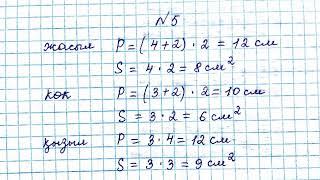 №5
жасыл P = (4+2) · 2 = 12 см
S = 4 · 2 = 8 см²
көк P = (3+2) · 2 = 10 см
S = 3 · 2 = 6 см²
қызыл P = 3 · 4 = 12 см
S = 3 · 3 = 9 см²